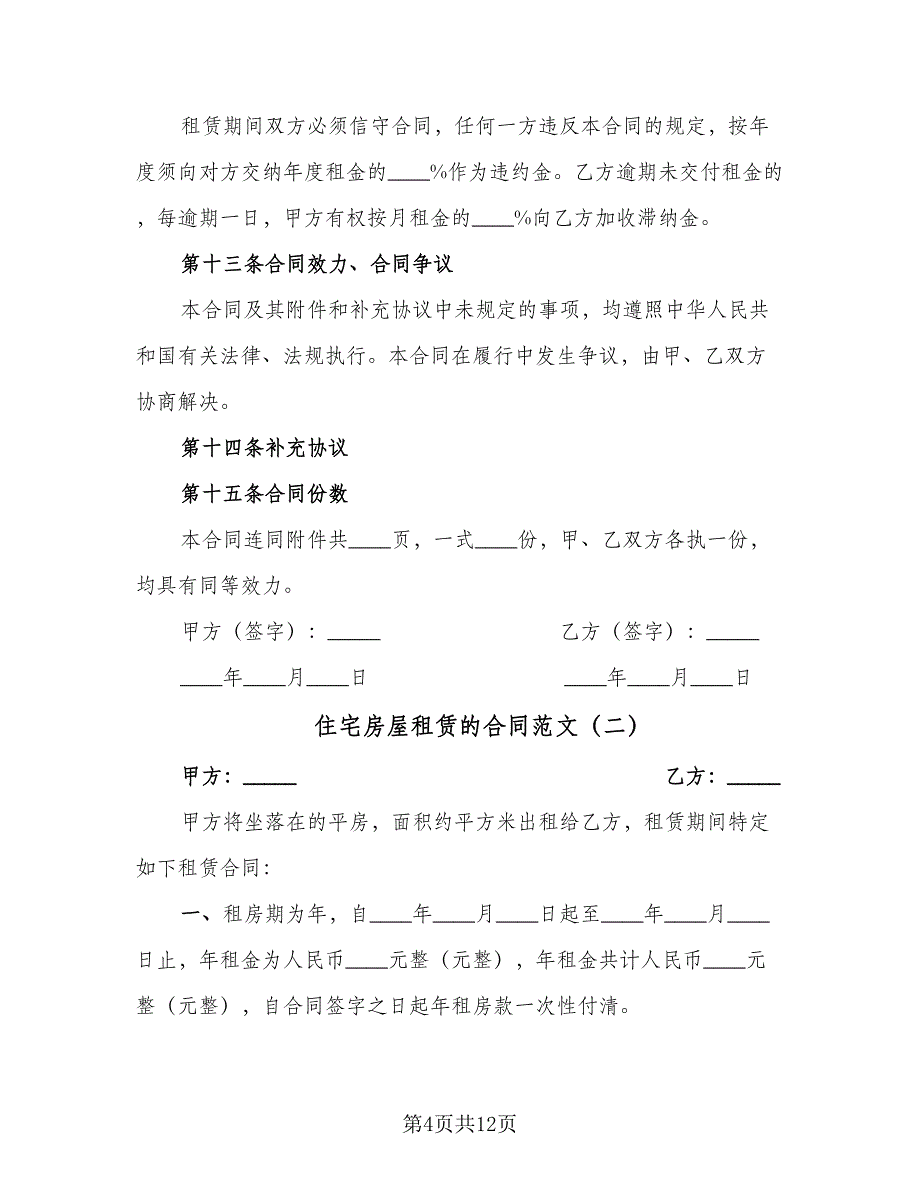 租赁期间双方必须信守合同，任何一方违反本合同的规定，按年
度须向对方交纳年度租金的____%作为违约金。乙方逾期未交付租金的
，每逾期一日，甲方有权按月租金的____%向乙方加收滞纳金。
第十三条合同效力、合同争议
本合同及其附件和补充协议中未规定的事项，均遵照中华人民共
和国有关法律、法规执行。本合同在履行中发生争议，由甲、乙双方
协商解决。
第十四条补充协议
第十五条合同份数
本合同连同附件共____页，一式____份，甲、乙双方各执一份，
均具有同等效力。
甲方（签字）：_____ 乙方（签字）：_____
____年____月____日 ____年____月____日
住宅房屋租赁的合同范文（二）
甲方：_____ 乙方：_____
甲方将坐落在的平房，面积约平方米出租给乙方，租赁期间特定
如下租赁合同：
一、租房期为年，自____年____月____日起至____年____月____
日止，年租金为人民币____元整（元整），年租金共计人民币____元
整（元整），自合同签字之日起年租房款一次性付清。
第4页共12页